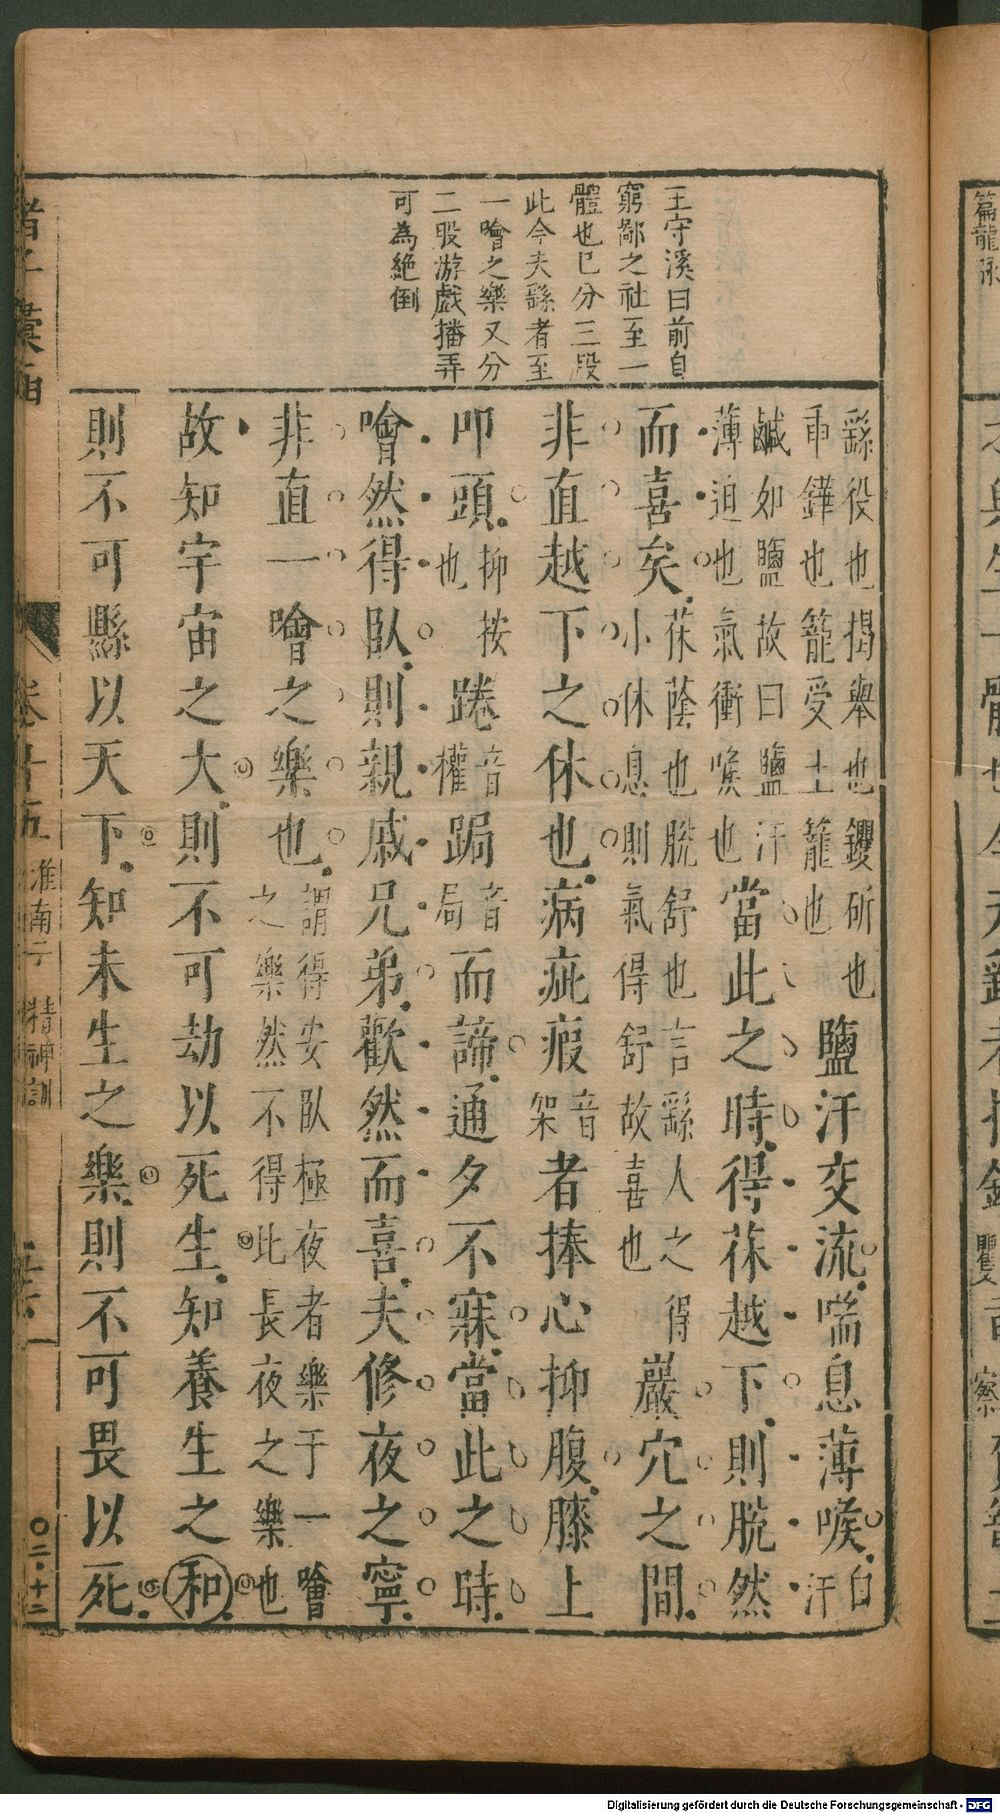 王守溪曰前自
窮鄙之社至一
體也已分三段
此今夫繇者至
一噲之樂又分
二股游戲播弄
可為絕倒
繇役也揭舉也钁斫也
臿鏵也籠受土籠也
鹽汗交流喘息薄喉
白
汗
鹹如鹽故曰鹽汗
薄迫也氣衝喉也
當此之時得茠越下則脫然
而喜矣
茠蔭也脫舒也言繇人之得
小休息則氣得舒故喜也
巖穴之間
非直越下之休也病疵瘕
音
架
者捧心抑腹膝上
叩頭
抑按
也
踡
音
權
跼
音
局
而諦通夕不寐當此之時
噲然得臥則親戚兄弟歡然而喜夫修夜之寧
非直一噲之樂也
謂得安臥極夜者樂于一噲
之樂然不得比長夜之樂也
故知宇宙之大則不可劫以死生知養生之和
則不可縣以天下知未生之樂則不可畏以死
諸子彙函
卷十五
淮南子
精神訓
〇二·十二
Digitalisierung gefördert durch die Deutsche Forschungsgemeinschaft - DFG